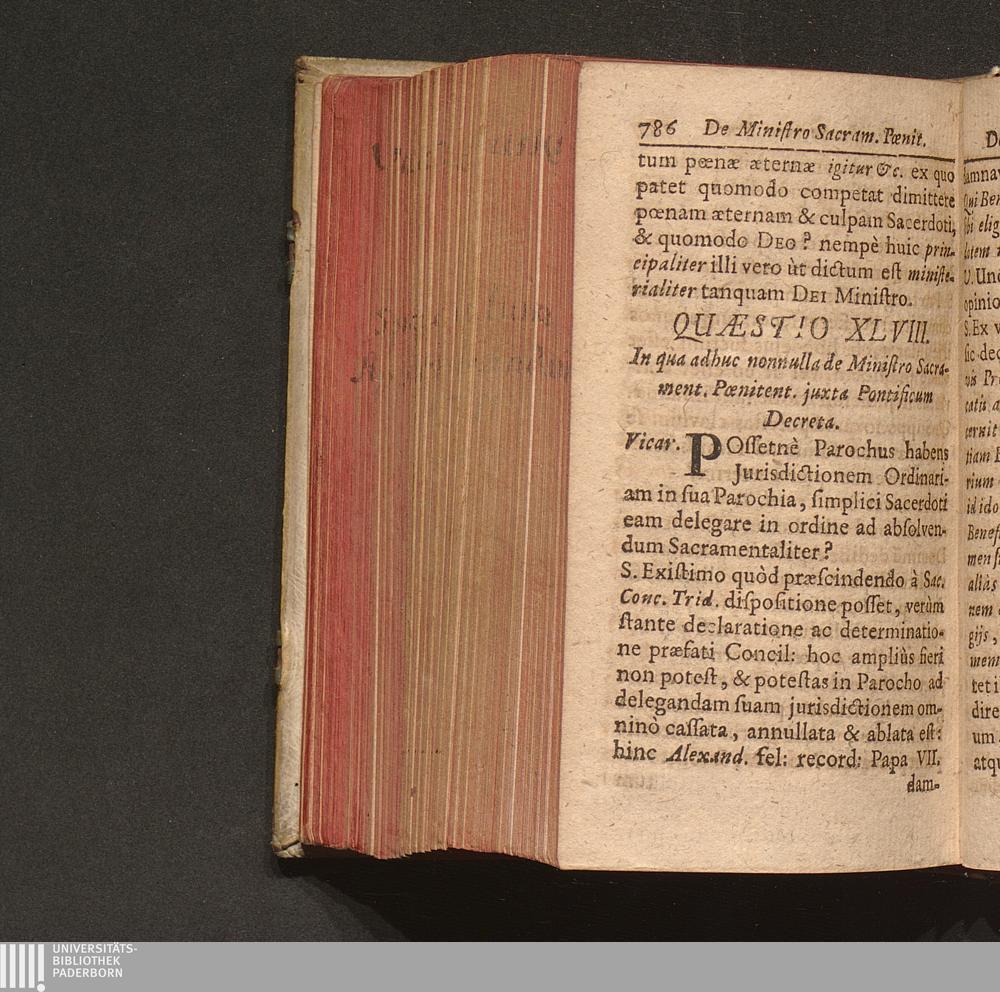 786 De Miniſtro Sacram. Pœnit.
tum pœnæ æternæ igitur &c. ex quo
patet quomodo competat dimittere
pœnam æternam & culpam Sacerdoti,
& quomodo DEO? nempè huic prin-
cipaliter illi vero ùt dictum eſt miniſte-
rialiter tanquam DEI Miniſtro.
QUÆSTIO XLVIII.
In qua adhuc nonnulla de Miniſtro Sacra-
ment. Pœnitent. juxta Pontificum
Decreta.
Vicar. POſſetnè Parochus habens
Jurisdictionem Ordinari-
am in ſua Parochia, ſimplici Sacerdoti
eam delegare in ordine ad abſolven-
dum Sacramentaliter?
S. Exiſtimo quòd præſcindendo à Sac.
Conc. Trid. diſpoſitione poſſet, verùm
ſtante declaratione ac determinatio-
ne præfati Concil: hoc ampliùs fieri
non poteſt, & poteſtas in Parocho ad
delegandam ſuam jurisdictionem om-
ninò caſſata, annullata & ablata eſt:
hinc Alexand. fel: record: Papa VII.
dam-
UNIVERSITÄTS-
BIBLIOTHEK
PADERBORN